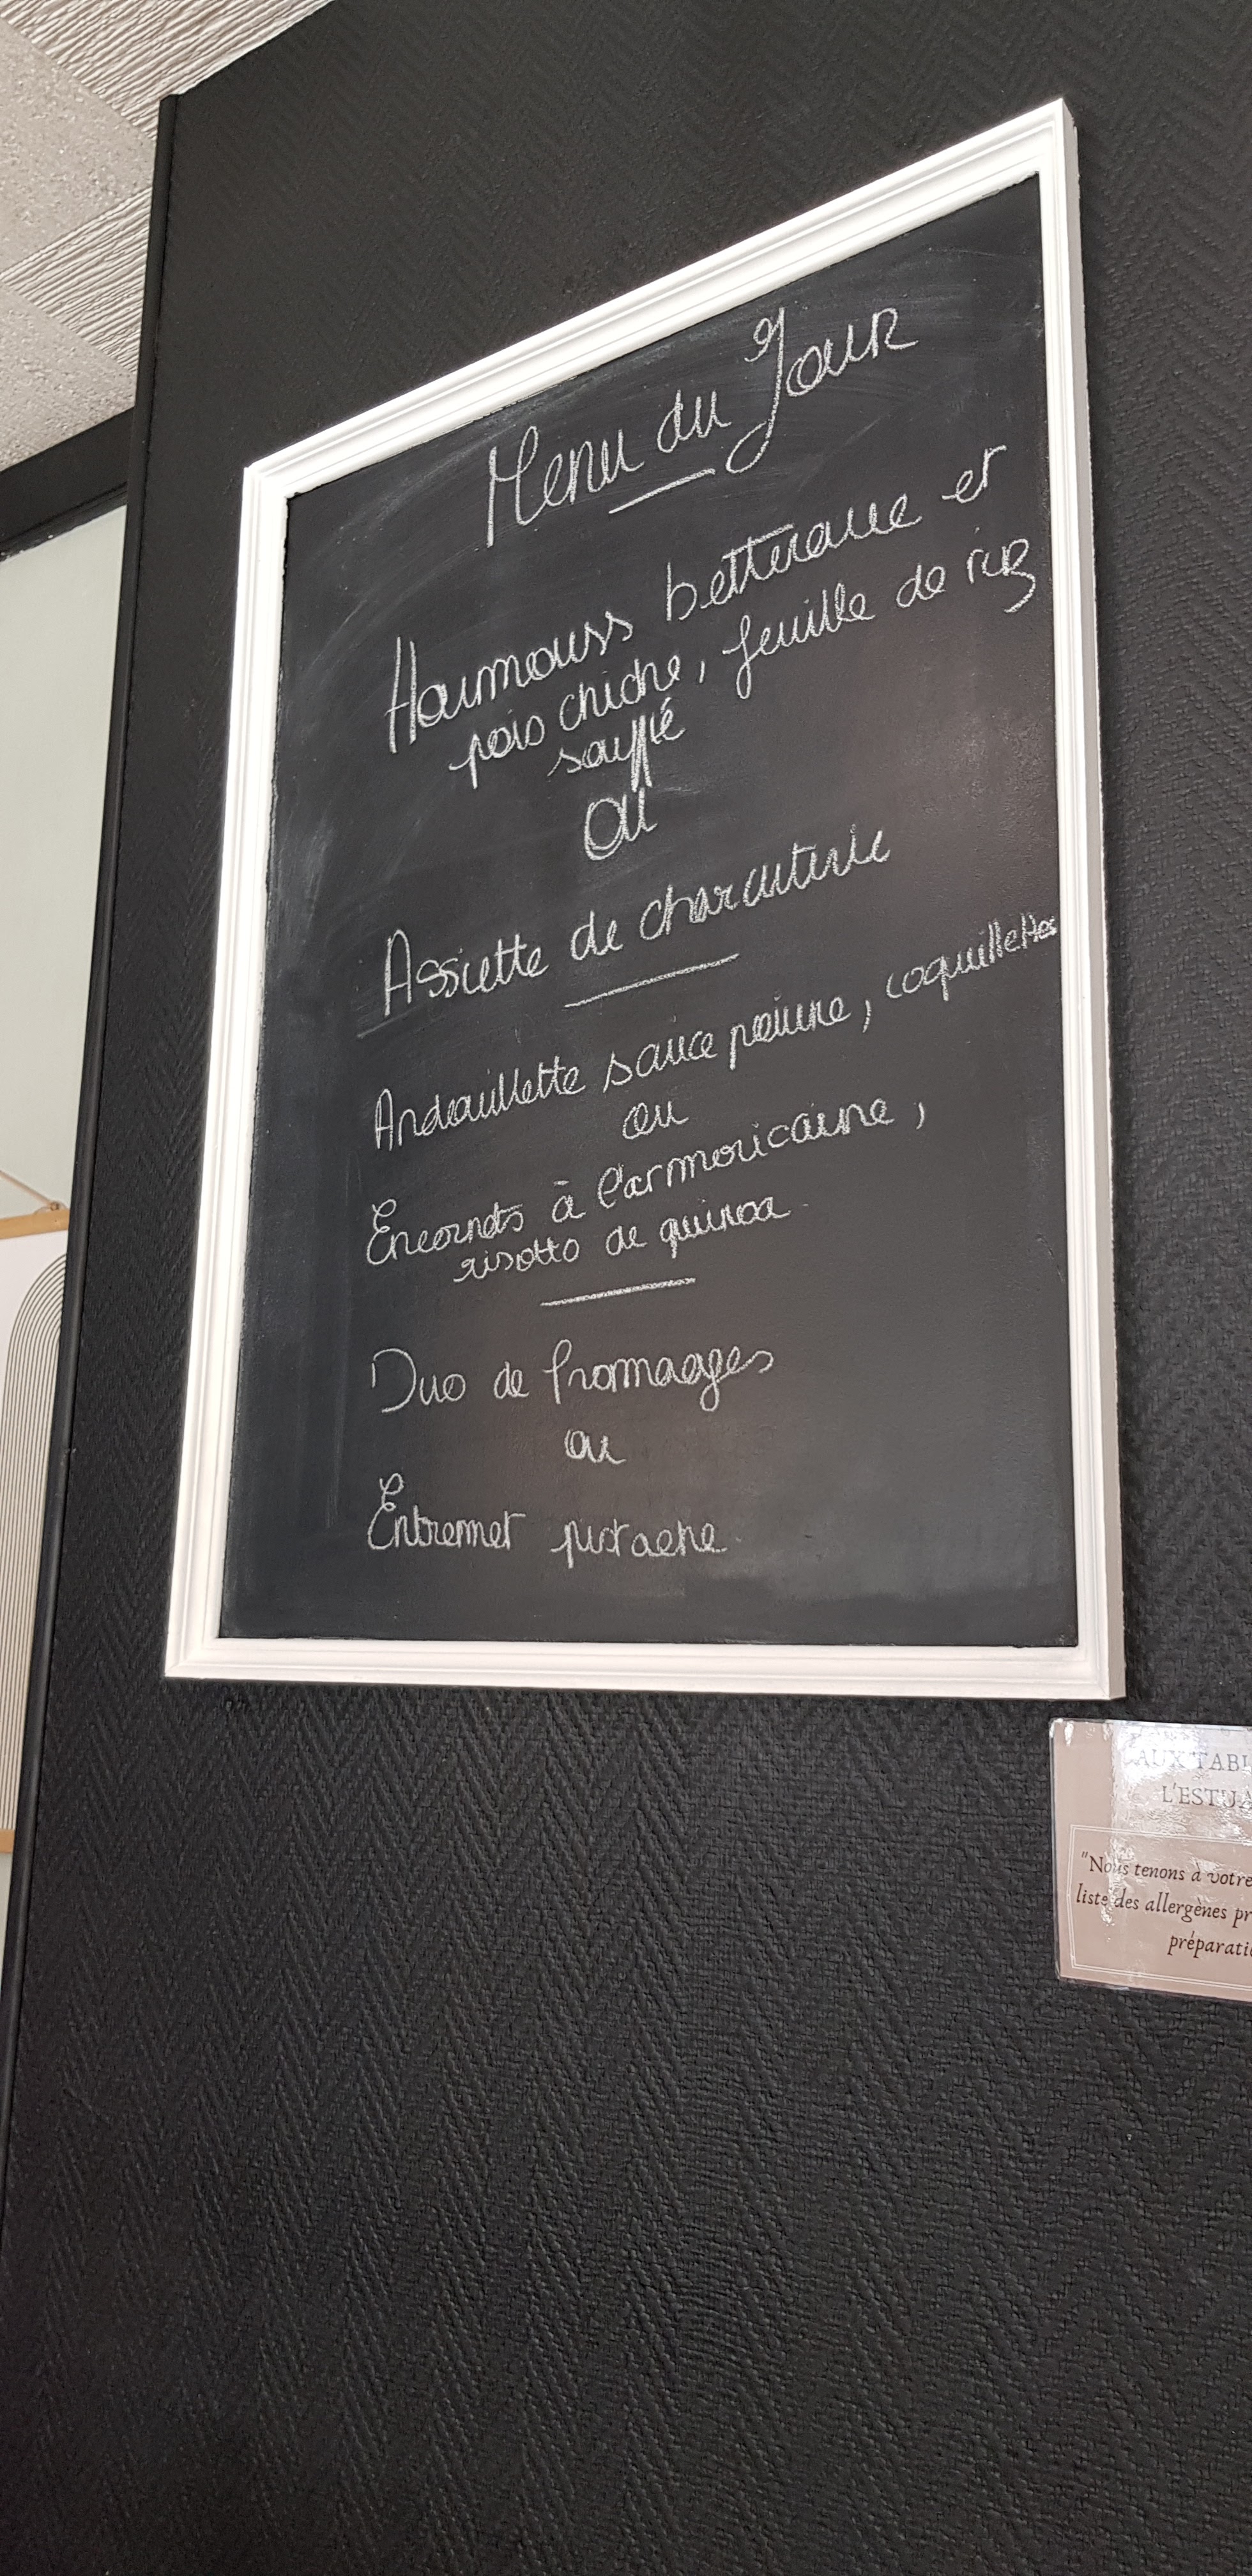 Menu du Jour
Houmouss betterave et
pois chiche, feuille de riz
soufflé
ou
Assiette de charcuterie
Andouillette sauce poivre, coquillettes
ou
Encornets à l'armoricaine,
risotto de quinoa
Duo de fromages
ou
Entremet pistache
AUX TABL
L'ESTUA
"Nous tenons à votre
liste des allergènes pr
préparatio